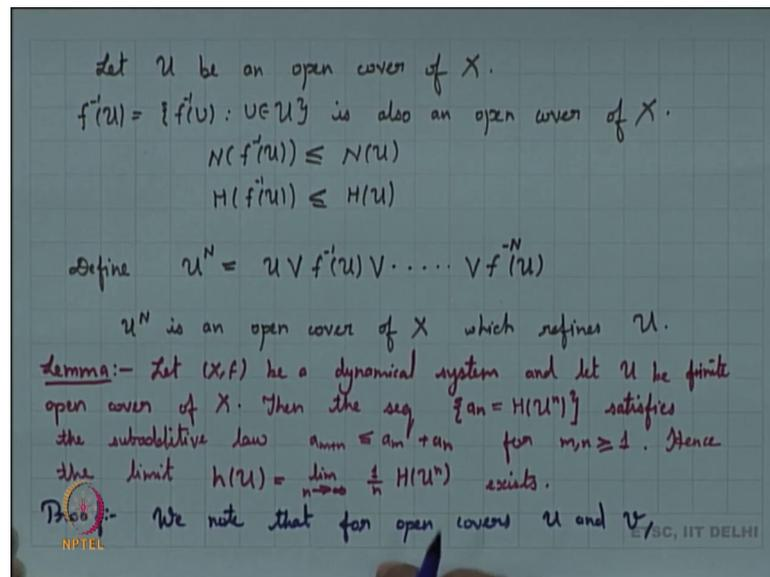 Let U be an open cover of X.
f⁻¹(U) = {f⁻¹(U) : U ∈ U} is also an open cover of X.
N(f⁻¹(U)) ≤ N(U)
H(f⁻¹(U)) ≤ H(U)
Define U^N = U V f⁻¹(U) V ..... V f^-N(U)
U^N is an open cover of X which refines U.
Lemma:- Let (X,f) be a dynamical system and let U be finite
open cover of X. Then the seq {an = H(Uⁿ)} satisfies
the subadditive law am+n ≤ am + an for m,n ≥ 1. Hence
the limit h(U) = lim n→∞ 1/n H(Uⁿ) exists.
Proof:- We note that for open covers U and V,
NPTEL
ETSC, IIT DELHI